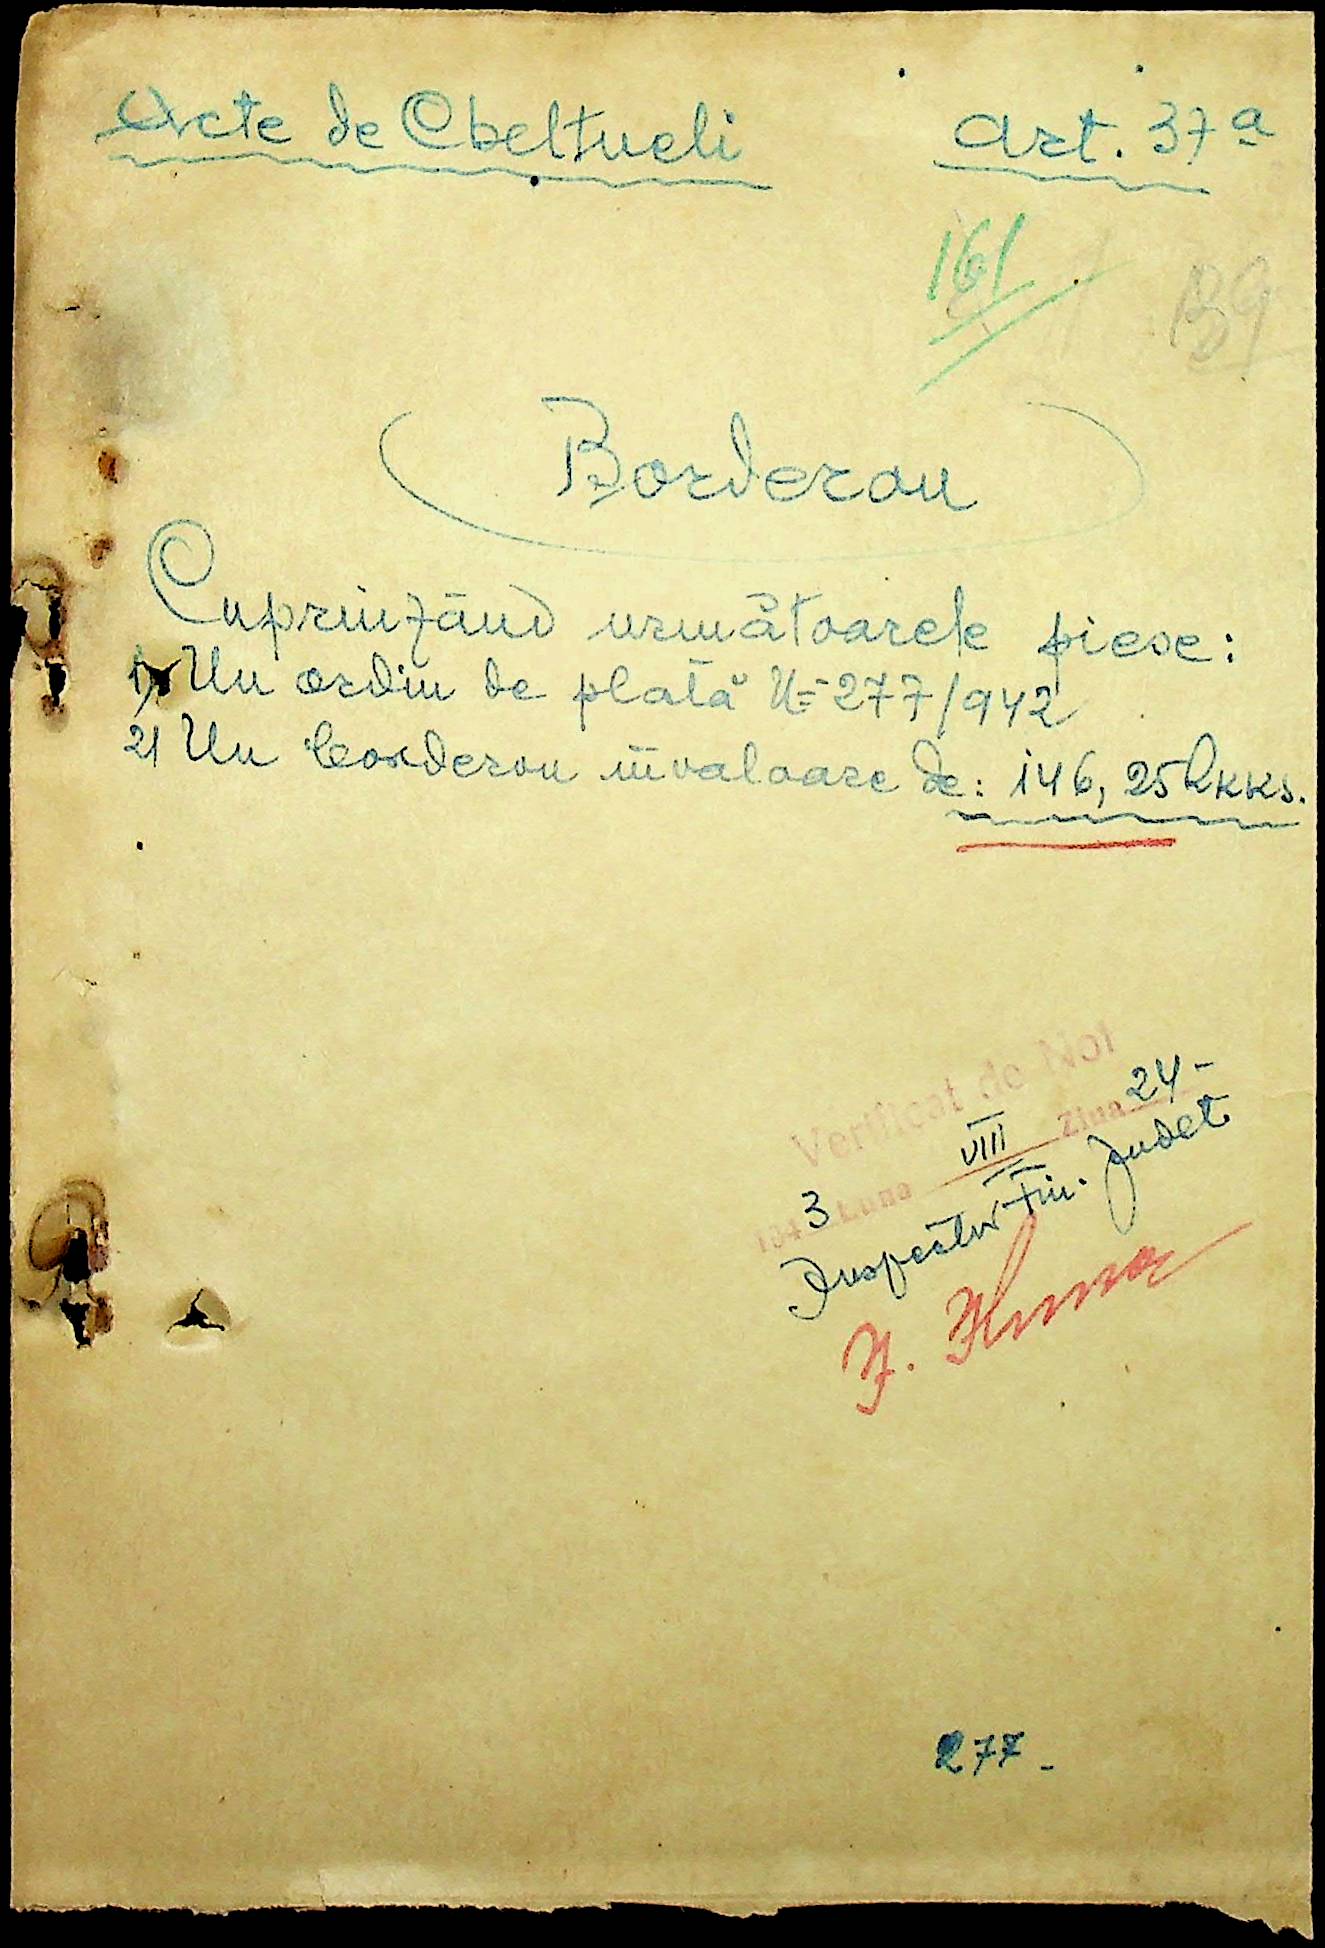 Acte de Cheltueli Art. 37a
161
139
Borderou
Cuprinzând următoarele piese:
1) Un ordin de plată N= 277/942
2) Un borderou în valoare de: 146,25 Rkks.
Verificat de Noi
1943 Luna VIII Ziua 24-
Inspector Fin. Judet
277-